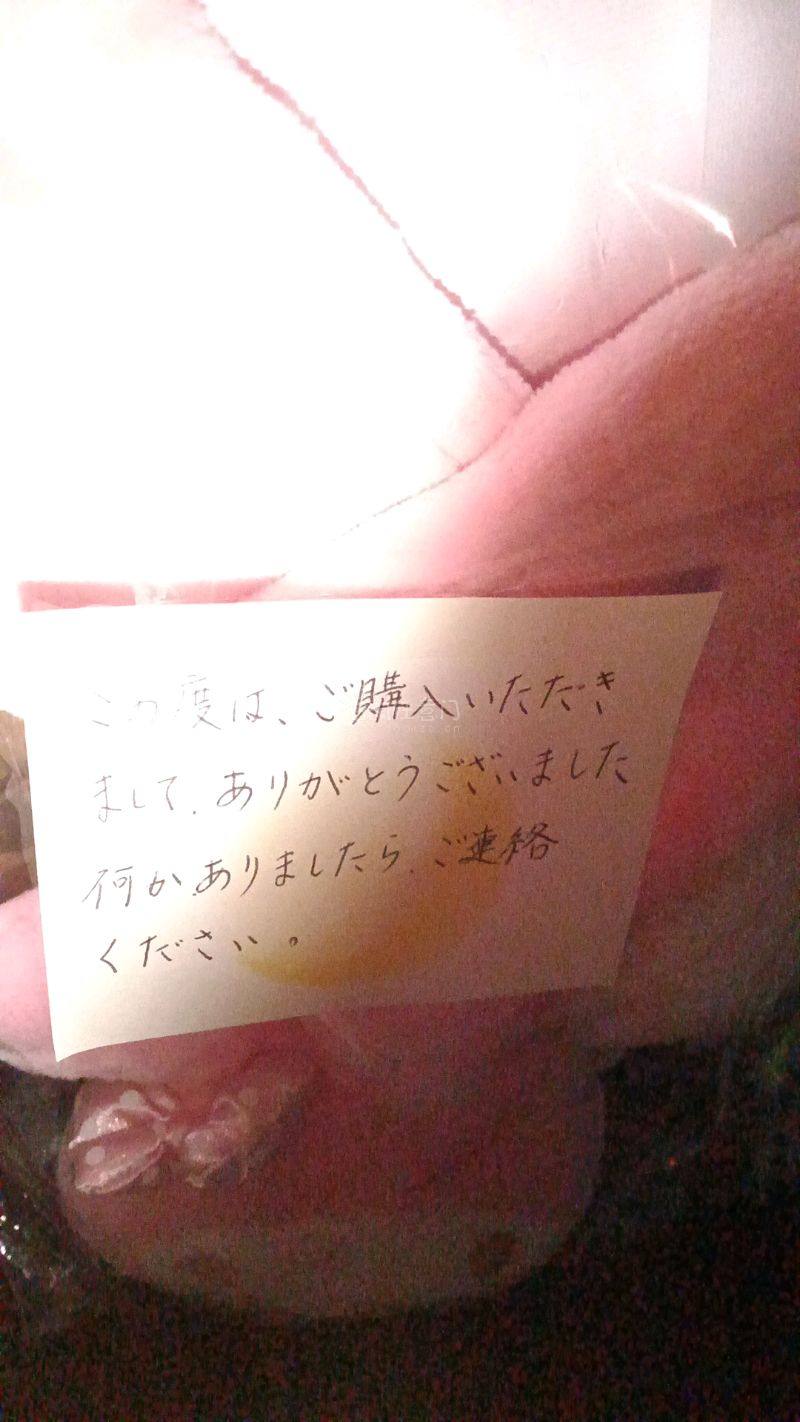 この度は、ご購入いただき
まして、ありがとうございました
何かありましたら、ご連絡
ください。